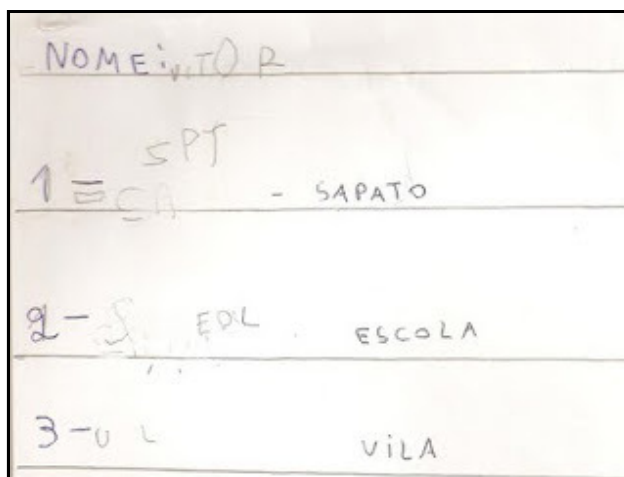 NOME: VITOR
SPT
1 = CA - SAPATO
2 - EOL ESCOLA
3 - U L VILA